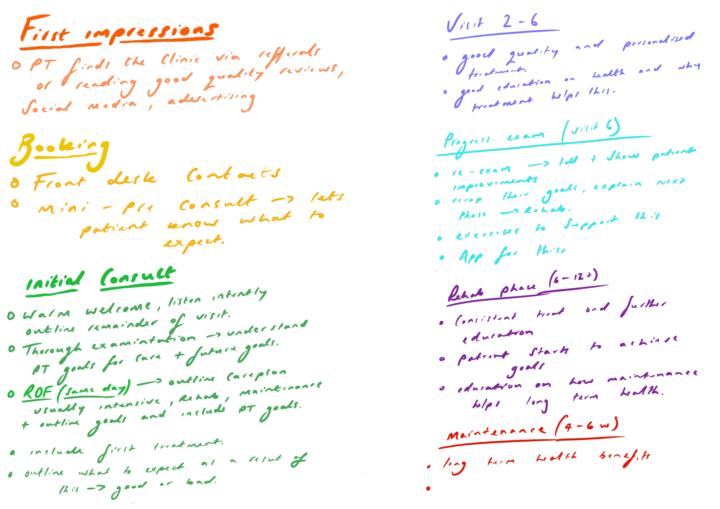 First impressions
o PT finds the Clinic via refferals
or reading good quality reviews,
Social media, advertising
Booking
o Front desk Contacts
o Mini - pre Consult → lets
patient know what to
expect.
Initial Consult
o Warm welcome, listen intently
outline remainder of visit.
o Thorough examintation → understand
PT goals for care + future goals.
o ROF (same day) → outline careplan
usually intensive, Rehab, maintenance
+ outline goals and include PT goals.
• include first treatment.
• outline what to expect as a result of
this → good or bad.
Visit 2-6
• good quality and personalised
treatment.
• good education on health and why
treatment helps this.
Progress exam (visit 6)
• re-exam → tell + show patient
improvements
• recap their goals, explain next
phase → Rehab.
• exercises to support this
• App for this,
Rehab phase (6-12+)
• Consistent treat and further
education
• patient starts to achieve
goals
• education on how maintenance
helps long term health.
Maintenance (4-6 w)
• long term health benefits
•